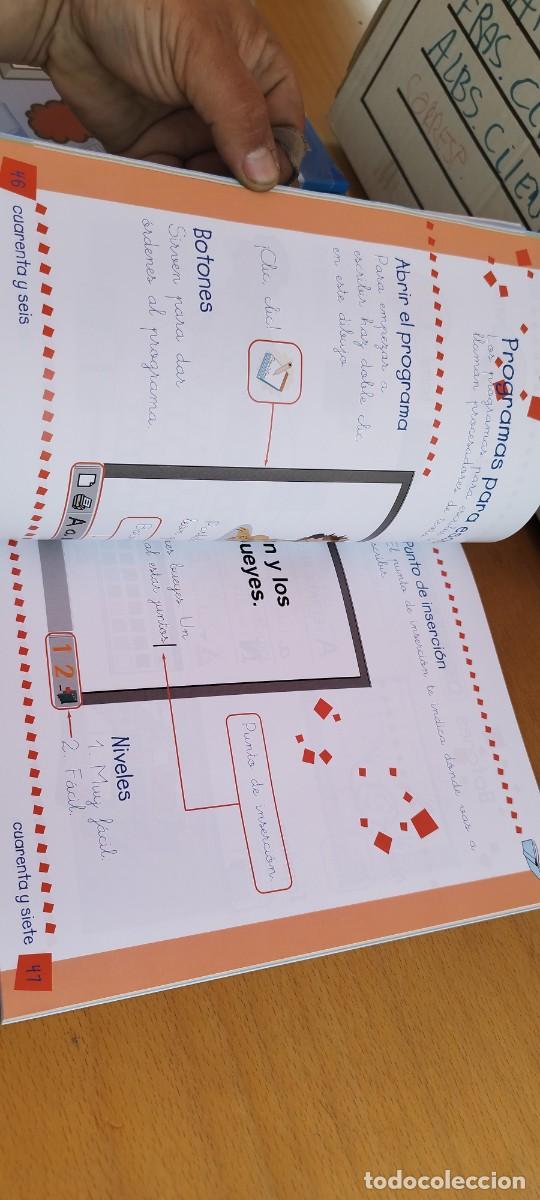 Programas para
Los programas para
llaman procesadores de
Abrir el programa
Para empezar a
escribir haz doble clic
en este dibujo.
¡Clic, clic!
Botones
Sirven para dar
órdenes al programa.
A a
46 cuarenta y seis
Punto de inserción
El punto de inserción te indica donde vas a
n y los
ueyes.
res bueyes. Un
al estar juntos
Punto de inserción.
1 2
Niveles
1. Muy fácil.
2. Fácil.
cuarenta y siete 47
FRAS.
ALBS.
todocoleccion